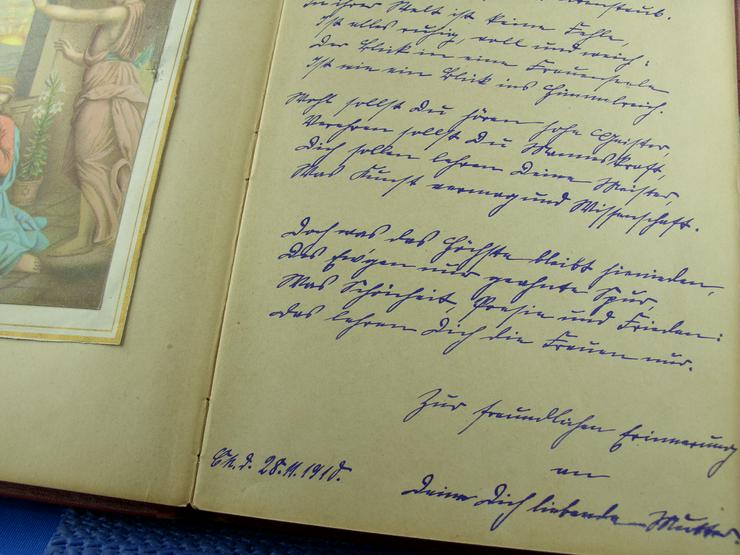 In ihrer Welt ist keine Fehle,
Ist alles ruhig, voll und weich:
Der Blick in eine Frauenseele
Ist wie ein Blick ins Himmelreich.
Wohl sollst Du hören hohe Geister,
Verehren sollst Du Manneskraft,
Dich sollen lehren Deine Meister,
Was Kunst vermag und Wissenschaft.
Doch was das Höchste bleibt hienieden,
Des Ew'gen nur geahnte Spur,
Was Schönheit, Poesie und Frieden:
Das lehren Dich die Frauen nur.
Zur freundlichen Erinnerung
an
Deine Dich liebende Mutter.
28.11.